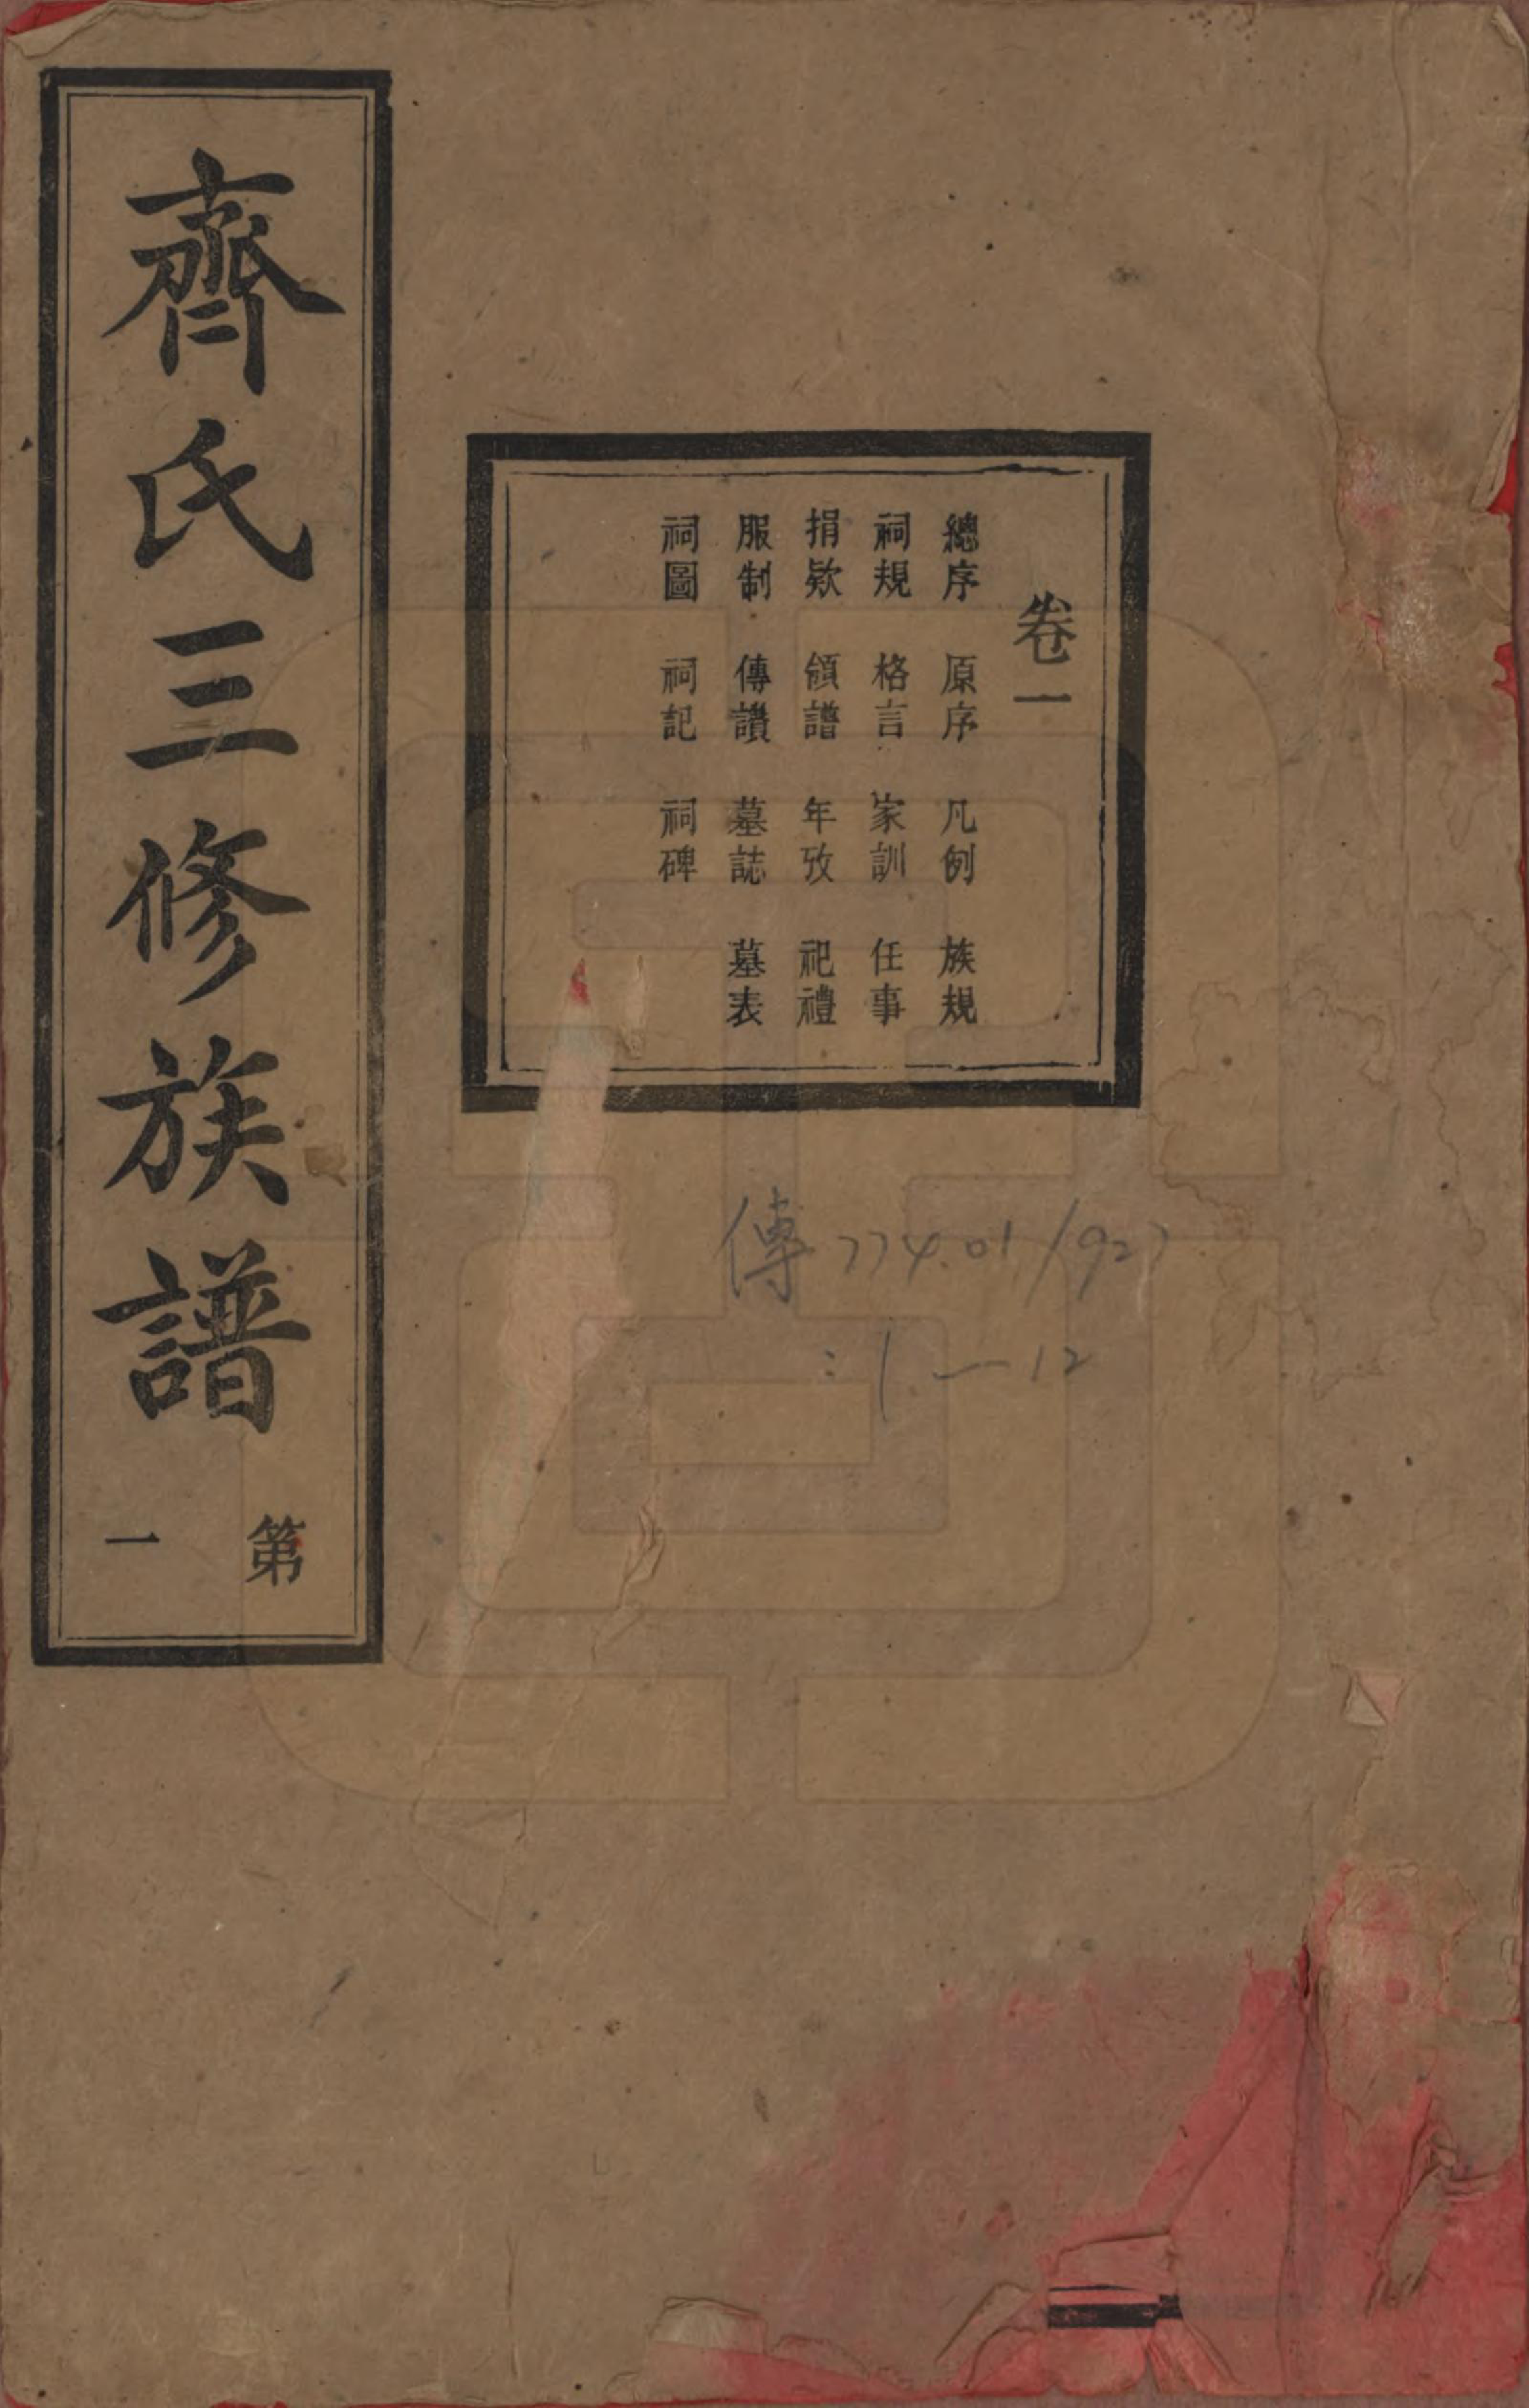 卷一
總序　原序　凡例　族規
祠規　格言　家訓　任事
捐欵　領譜　年攷　祀禮
服制　傳讚　墓誌　墓表
祠圖　祠記　祠碑
齊氏三修族譜
第一
傳774.01/927
:1—12